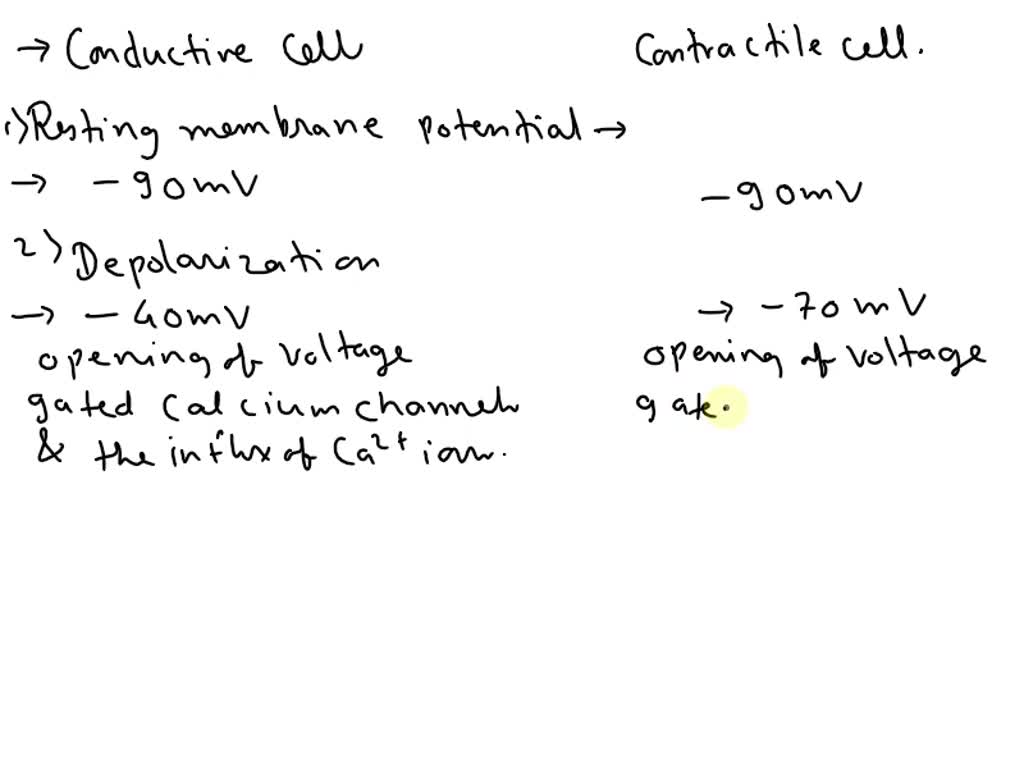 → Conductive Cell Contractile cell.
1) Resting membrane potential →
→ -90mV -90mV
2) Depolarization
→ -40mV → -70mV
opening of voltage opening of voltage
gated Calcium channels gate.
& the influx of Ca²⁺ ions.